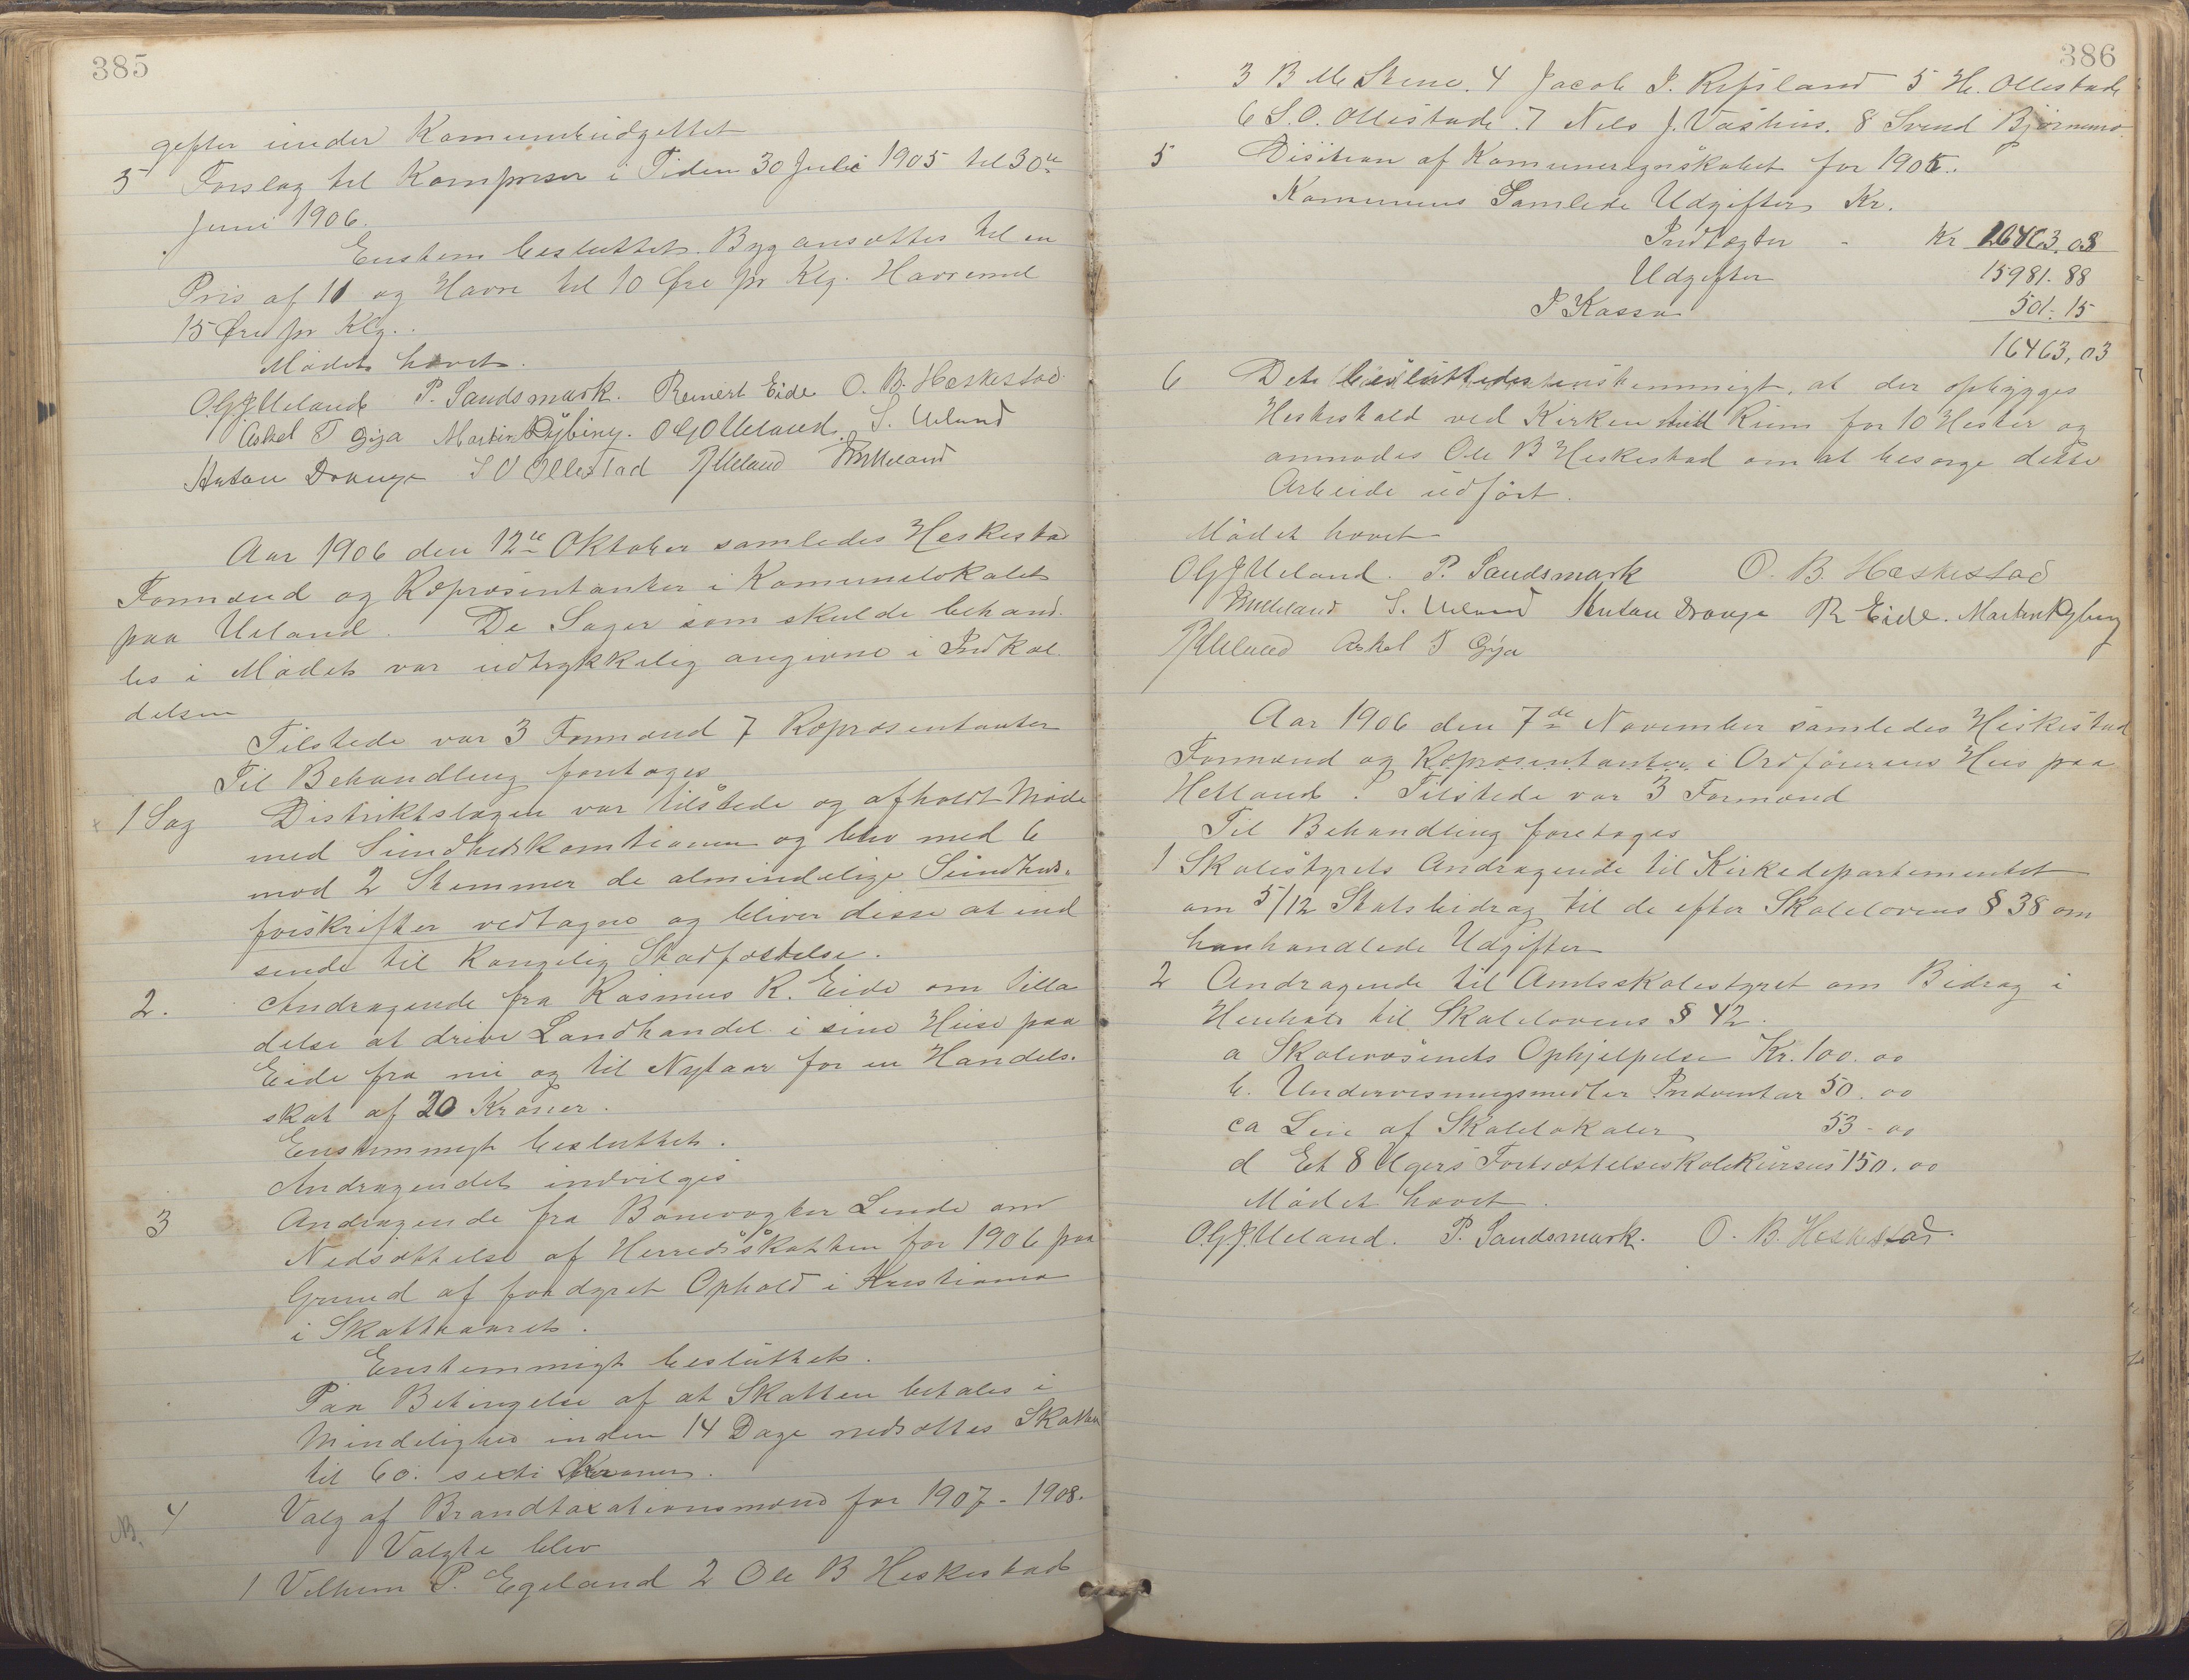 385
gifter under Komunebudgettet
5 Forslag til Kornpriser i Tiden 30 Juli 1905 til 30te
Juni 1906.
Enstem besluttet. Byg ansættes til en
Pris af 11 og Havre til 10 Øre pr Klg. Havremel
15 Øre pr Klg.
Mødet hævet.
O.G.J. Ueland P. Sandsmark. Reinert Eide O. B. Heskestad
Askel T Gya Martin Rygbiny. O G O Ueland. S. Ueland
Anton Drange S O Ollestad
Aar 1906 den 12te Oktober samledes Heskestad
Formænd og Repræsentanter i Komunelokalet
paa Ueland. De Sager som skulde behand.
les i Mødet var udtrykkelig angivne i Indkal
delsen
Tilstede var 3 Formænd 7 Repræsentanter
Til Behandling foretoges
1 Sag Distriktslægen var tilstede og afholdt Møde
med Sundhedskomtionen og blev med 6
mod 2 Stemmer de almindelige Sundheds.
forskrifter vedtagne og bliver disse at ind
sende til Kongelig Stadfæstelse.
2. Andragende fra Rasmus R. Eide om tilla
delse at drive Landhandel i sine Huse paa
Eide fra nu og til Nytaar for en Handels.
skat af 20 Kroner.
Enstemmigt besluttet.
Andragendet indvilges
3 Andragende fra Banevogter Lende om
Nedsættelse af Herredsskatten for 1906 paa
Grund af fordyret Ophold i Kristiania
i Skatteaaret.
Enstemmigt besluttet.
Paa Betingelse af at Skatten betales i
Mindelighed inden 14 Dage nedsættes Skatten
til 60. sexti Kroner.
NB. 4 Valg af Brandtaxationsmænd for 1907 - 1908.
Valgte blev
1 Vilhem P. Egeland 2 Ole B Heskestad
386
3 B M Stene. 4 Jacob J. Refsland 5 H. Ollestad
6 S. O. Ollestad. 7 Nils J. Vashus. 8 Svend Bjørnemo
5 Disition af Komuneregnskabet for 1905.
Komunens Samlede Udgifter Kr.
Indtægter - Kr 16463,03
Udgifter 15981.88
I Kassa 501.15
16463,03
6 Det besluttedes enstemmigt, at der opbygges
Hestestald ved Kirken med Rum for 10 Hester og
anmodes Ole B Heskestad om at besørge dette
Arbeide udført.
Mødet hævet
O G J Ueland. P. Sandsmark O. B. Heskestad
S. Ueland Anton Drange R Eide. Martin Rygbeng
Askel T Gya
Aar 1906 den 7de November samledes Heskestad
Formænd og Repræsentanter i Ordførerens Hus paa
Helland. Tilstede var 3 Formænd
Til Behandling foretoges
1 Skolestyrets Andragende til Kirkedepartementet
om 5/12 Statsbidrag til de efter Skolelovens § 38 om
hanhandlede Udgifter
2 Andragende til Amtsskolestyret om Bidrag i
Henhold til Skolelovens § 42.
a Skolevæsenets Ophjelpelse Kr. 100.00
b. Undervisningsmedler Indventar 50.00
ca Leie af Skolelokaler 53-00
d Et 8 Ugers Fortsættelsesskolekursus 150.00
Mødet hævet.
O.G.J. Ueland. P. Sandsmark. O. B. Heskestad.